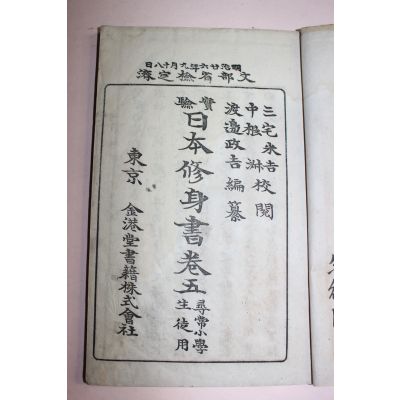 明治廿六年九月十八日
文部省檢定濟
三宅米吉
中根淑校閲
渡邉政吉編纂
實驗
日本修身書卷五
尋常小學
生徒用
東京
金港堂書籍株式會社